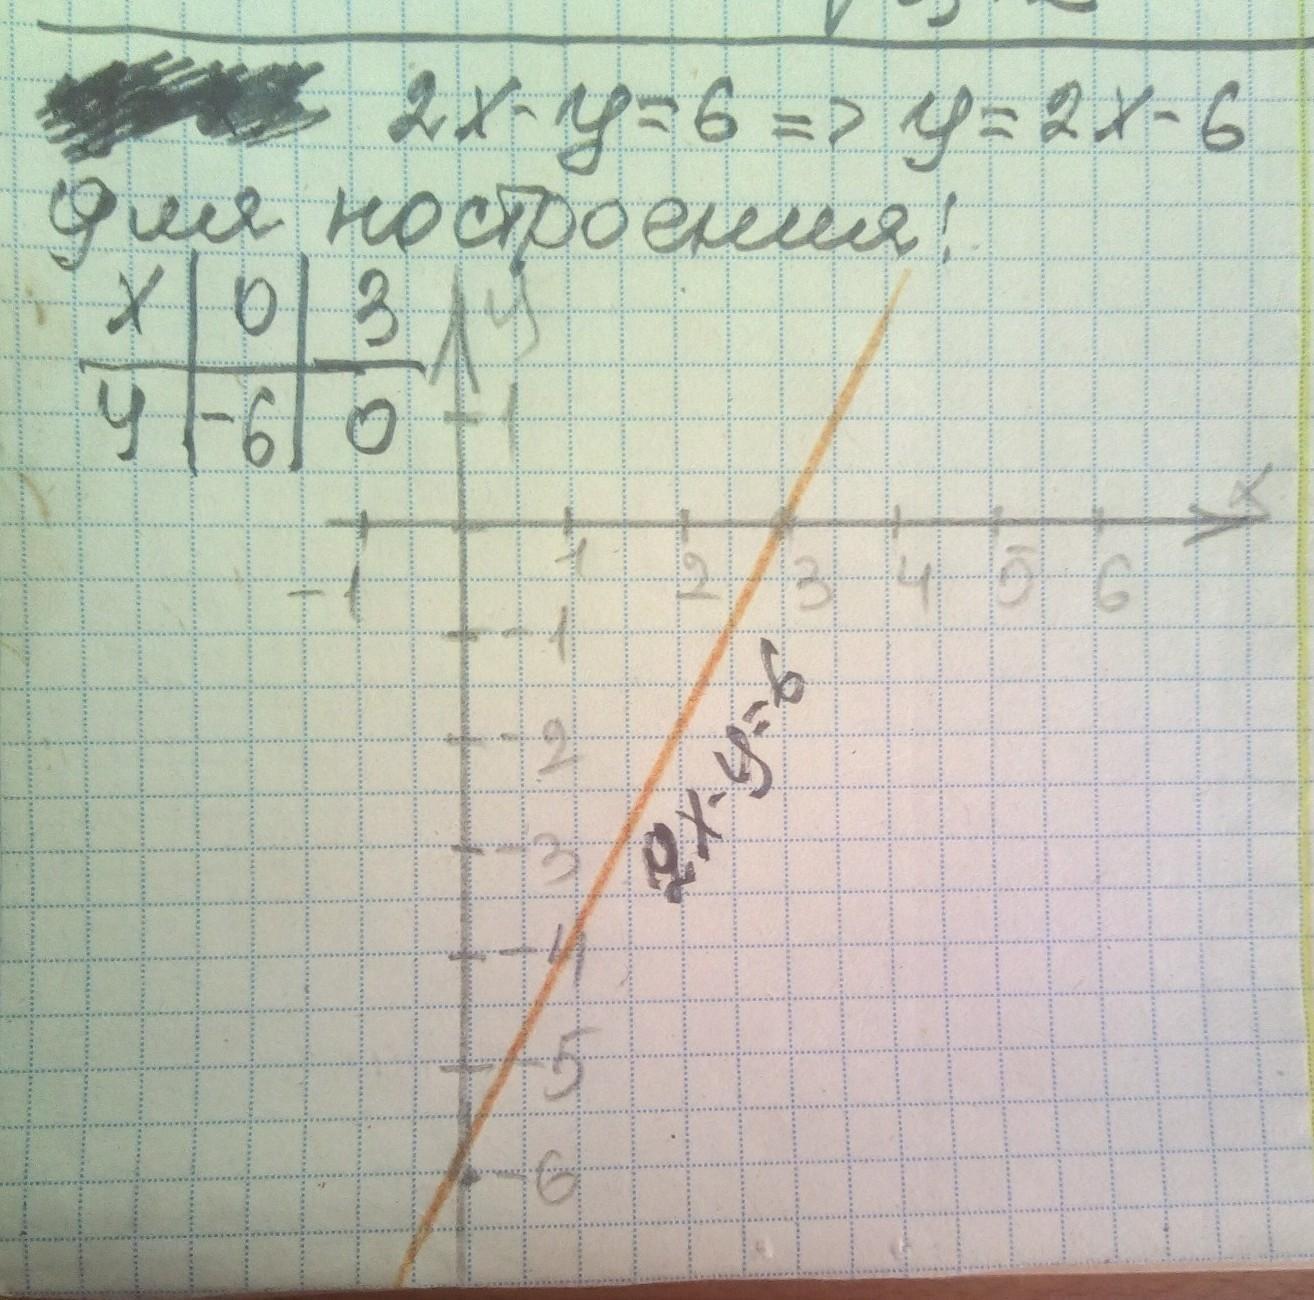 2x-y=6 => y=2x-6
для построения:
x | 0 | 3
y | -6 | 0
y
1
x
-1 1 2 3 4 5 6
-1
-2
2x-y=6
-3
-4
-5
-6